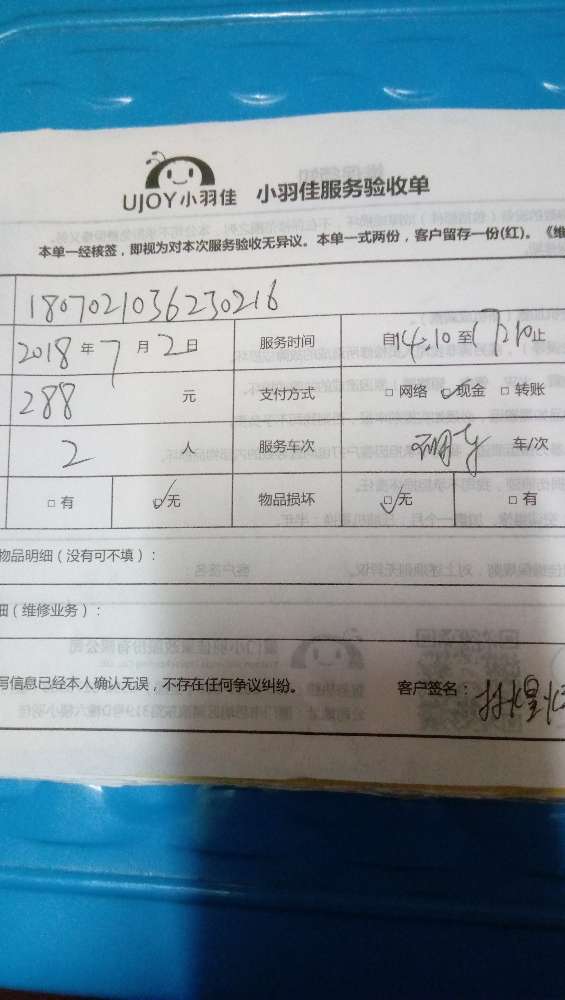 UJOY小羽佳 小羽佳服务验收单
本单一经核签，即视为对本次服务验收无异议。本单一式两份，客户留存一份(红)。《维
1807021036230216
2018 年 7 月 2 日 服务时间 自14.10 至17210止
288 元 支付方式 □ 网络 ☑ 现金 □ 转账
2 人 服务车次 车/次
□ 有 ☑ 无 物品损坏 ☑ 无 □ 有
物品明细（没有可不填）：
细（维修业务）：
写信息已经本人确认无误，不存在任何争议纠纷。 客户签名：